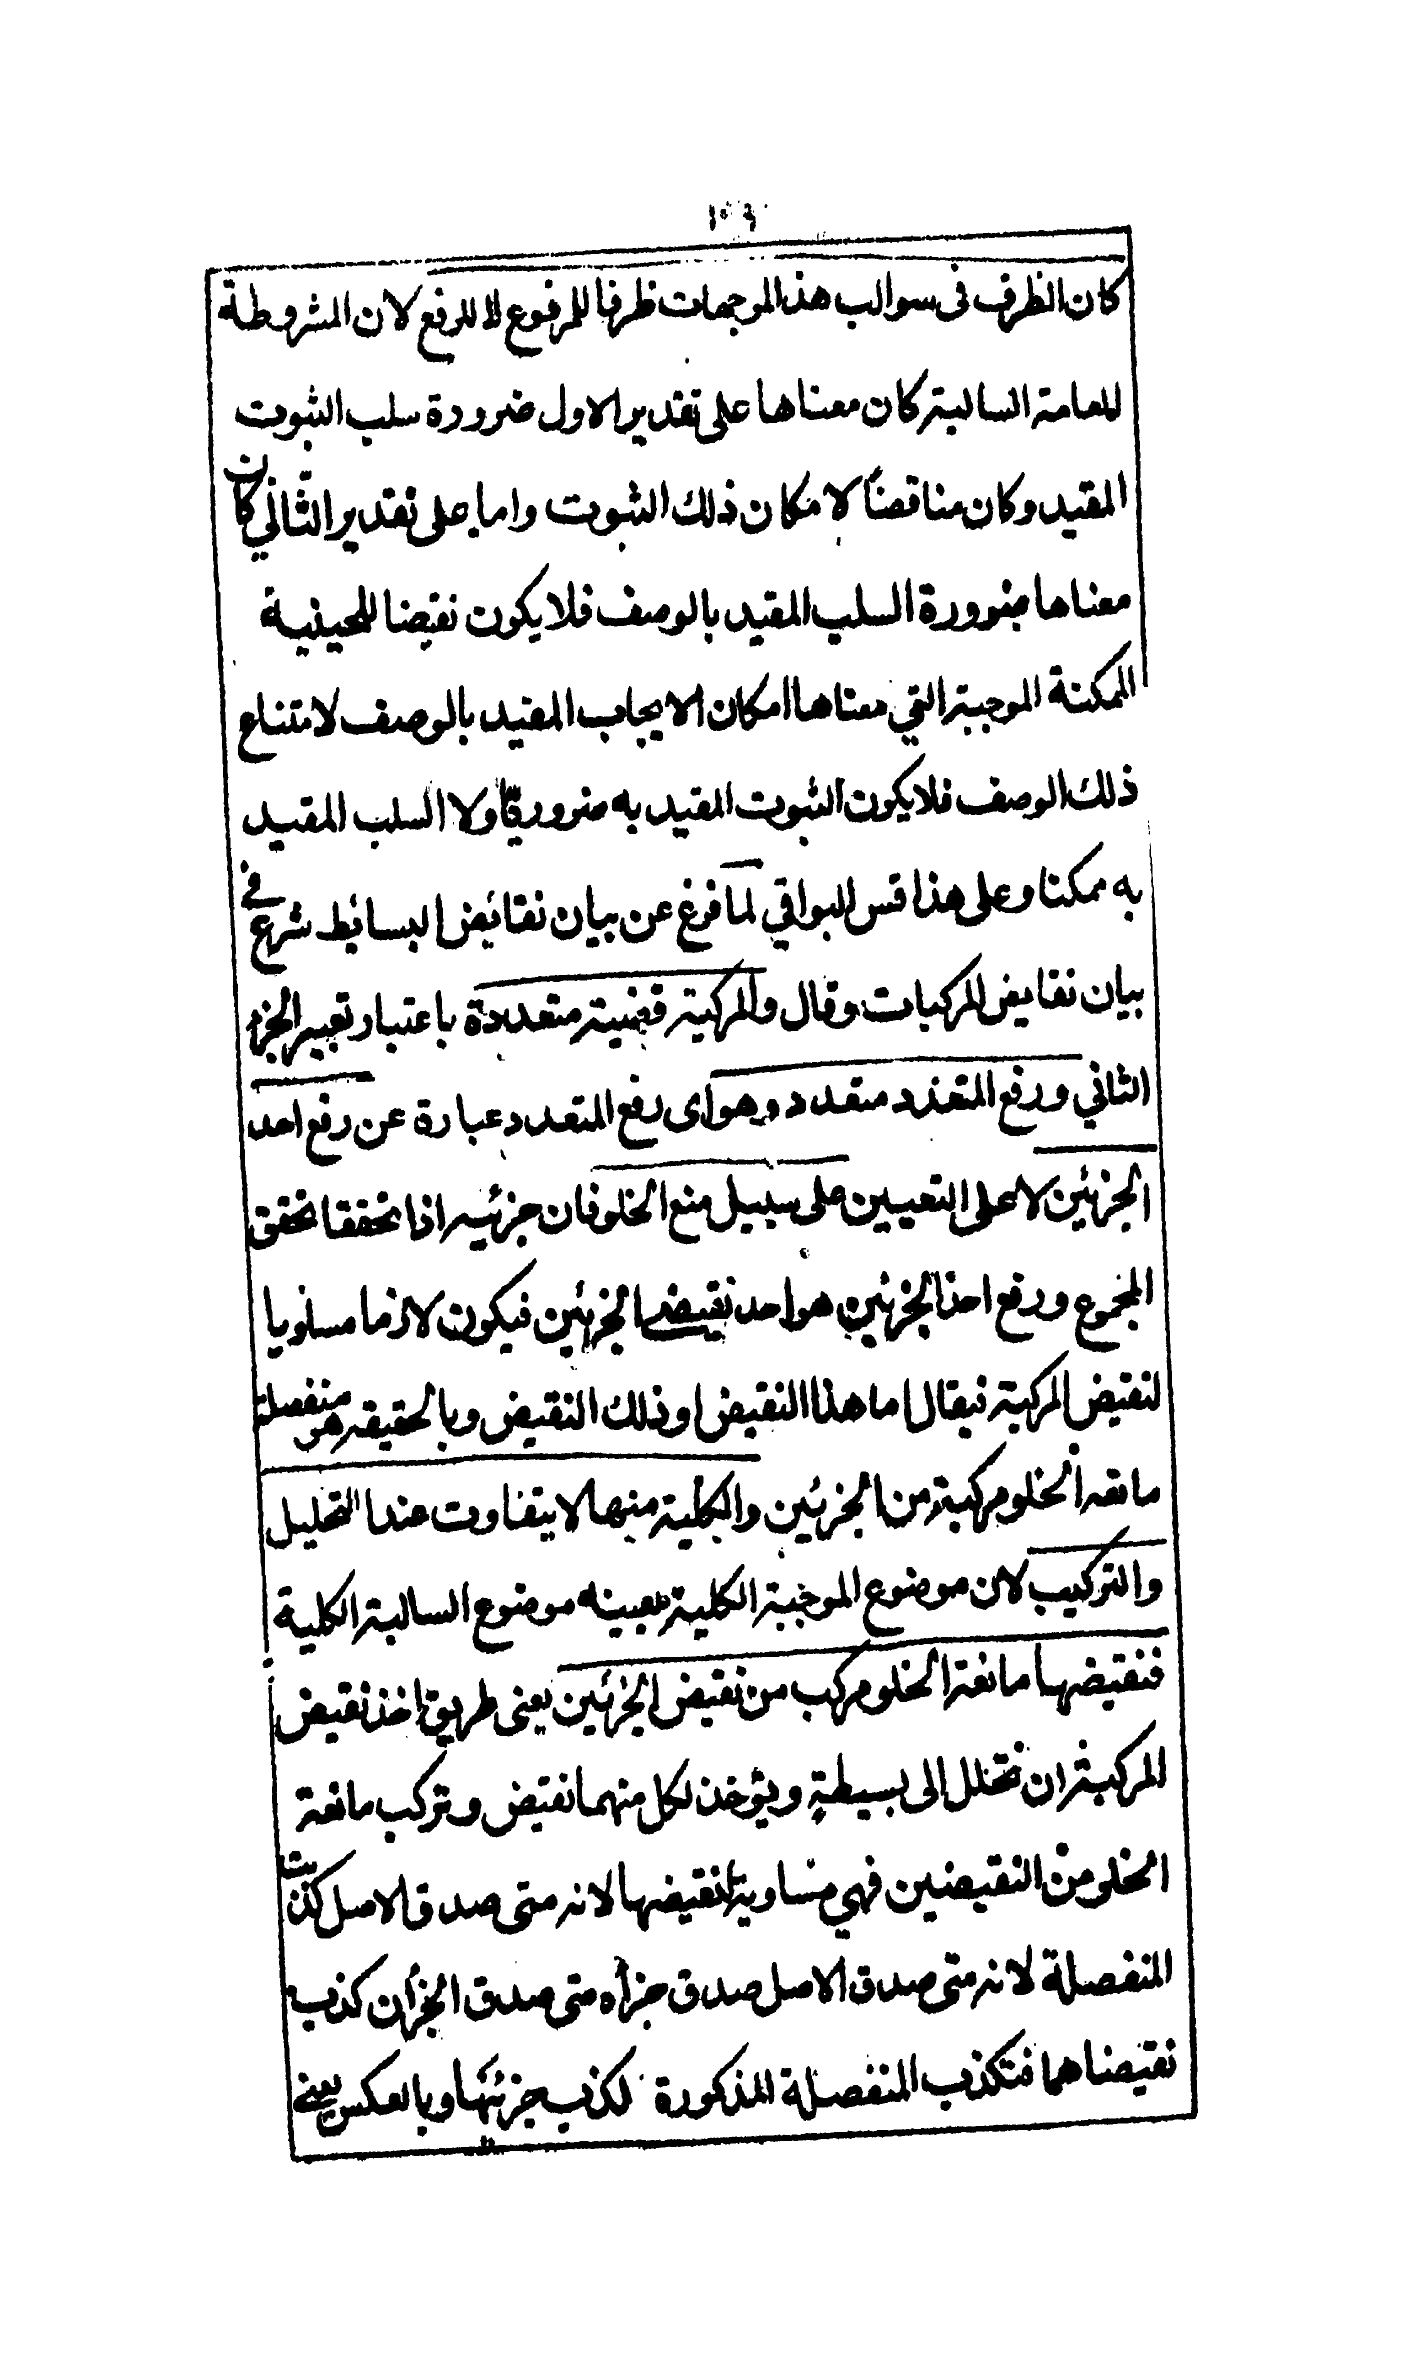 ١٠٩
كان الظرف فى سوالب هذا الموجهات ظرفا للمرفوع لا للرفع لان المشروطة
للعامة السالبة كان معناها على تقدير الاول ضرورة سلب الثبوت
المقيد وكان مناقضًا لامكان ذلك الثبوت واما على تقدير الثّاني كان
معناها ضرورة السلب المقيد بالوصف فلا يكون نقيضا للحينية
الممكنة الموجبة التي معناها امكان الايجاب المقيد بالوصف لامتناع
ذلك الوصف فلا يكون الثبوت المقيد به ضروريًّا ولا السلب المقيد
به ممكنا وعلى هذا قس البواقي لما فرغ عن بيان نقائض البسائط شرع في
بيان نقايض المركبات وقال والمركبة قضية متعددة باعتبار تعبير الجزء
الثاني ورفع المتعدد متعدد وهو اى رفع المتعدد عبارة عن رفع احد
الجزئين لا على التعيين على سبيل منع الخلو فان جزئيه اذا تحققا تحقق
المجموع ورفع احد الجزئين هو احد نقيضى الجزئين فيكون لازما مساويا
لنقيض المركبة فيقال اما هذا النقيض او ذلك النقيض وبالحقيقه هى منفصلة
مانعه الخلو مركبة من الجزئين والكلية منها لا يتفاوت عند التحليل
والتركيب لان موضوع الموجبة الكلية بعينه موضوع السالبة الكلية
فنقيضها مانعة الخلو مركب من نقيض الجزئين يعنى طريق اخذ نقيض
المركبة ان تحلل الى بسيطة ويؤخذ لكل منهما نقيض وتركب مانعة
الخلو من النقيضين فهي مساوية لنقيضها لانه متى صدق الاصل كذبت
المنفصلة لانه متى صدق الاصل صدق جزأه متى صدق الجزأن كذب
نقيضاهما فتكذب المنفصلة المذكورة لكذب جزئيها وبالعكس يعنے